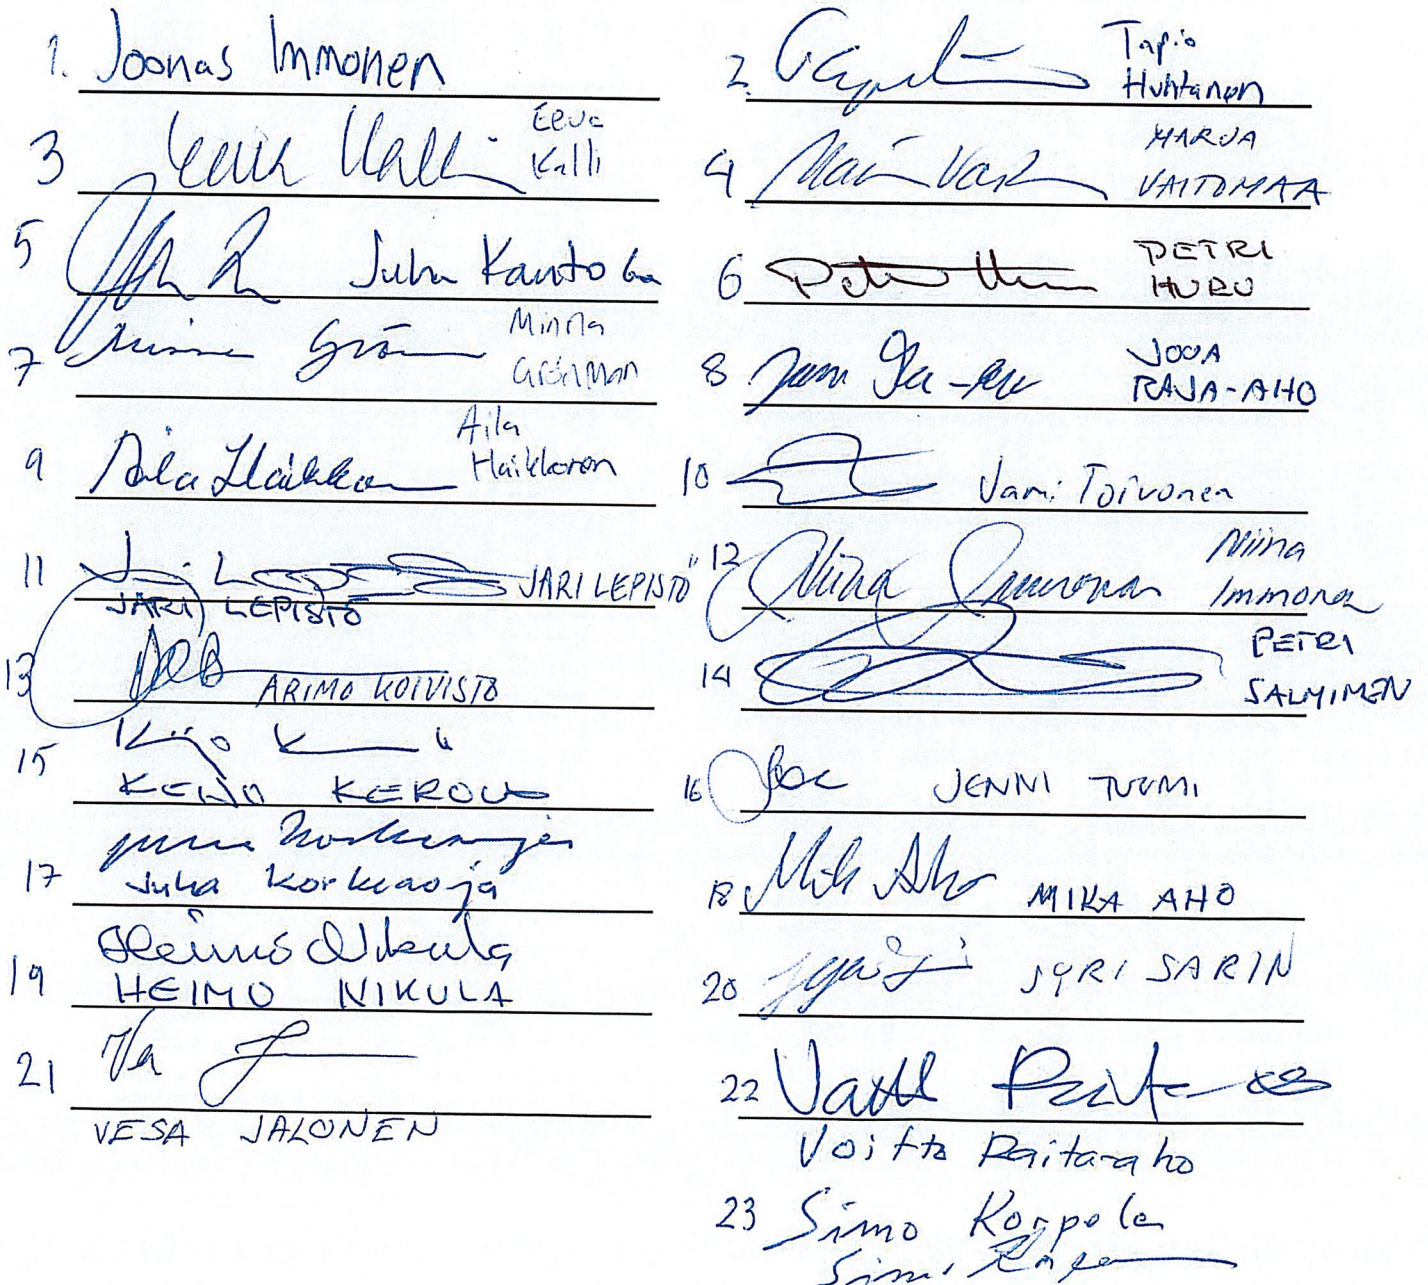 1. Joonas Immonen
2. Tapio
Huhtanen
3 Eeva
Kalli
4 MARJA
VAITOMAA
5 Juha Kantola
6 PETRI
HURU
7 Minna
Grönman
8 JOOA
RAJA-AHO
9 Aila Haikkonen
Aila
Haikkonen
10 Jami Toivonen
11 JARI LEPISTÖ
JARI LEPISTÖ
12 Niina Immonen
Niina
Immonen
13 ARIMO KOIVISTO
14 PETRI
SALMINEN
15
KEIJO KEROLA
16 JENNI TUOMI
17
Juha Korkeaoja
18 Mika Aho MIKA AHO
19 Heimo Nikula
HEIMO NIKULA
20 JYRI SARIN
21
VESA JALONEN
22
Voitto Raita-aho
23 Simo Korpela